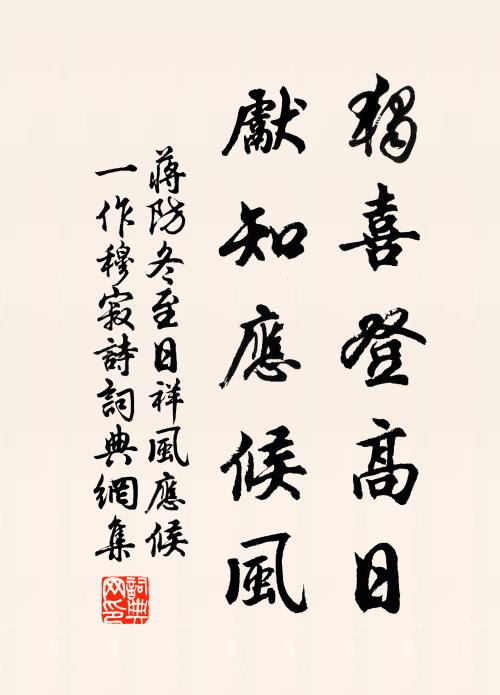 獨喜登高日
獻知應候風
蔣防冬至日祥風應候
一作穆寂詩詞典網集
詞典
网印